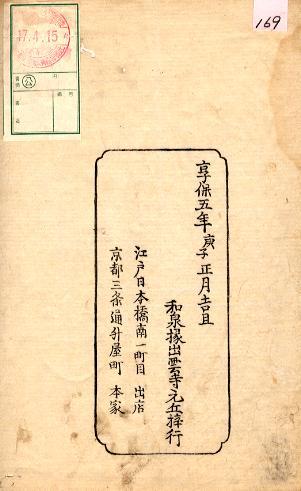 169
17.4.15
公
享保五年庚子正月吉旦
和泉掾出雲寺元丘梓行
江戸日本橋南一町目 出店
京都三条通升屋町 本家